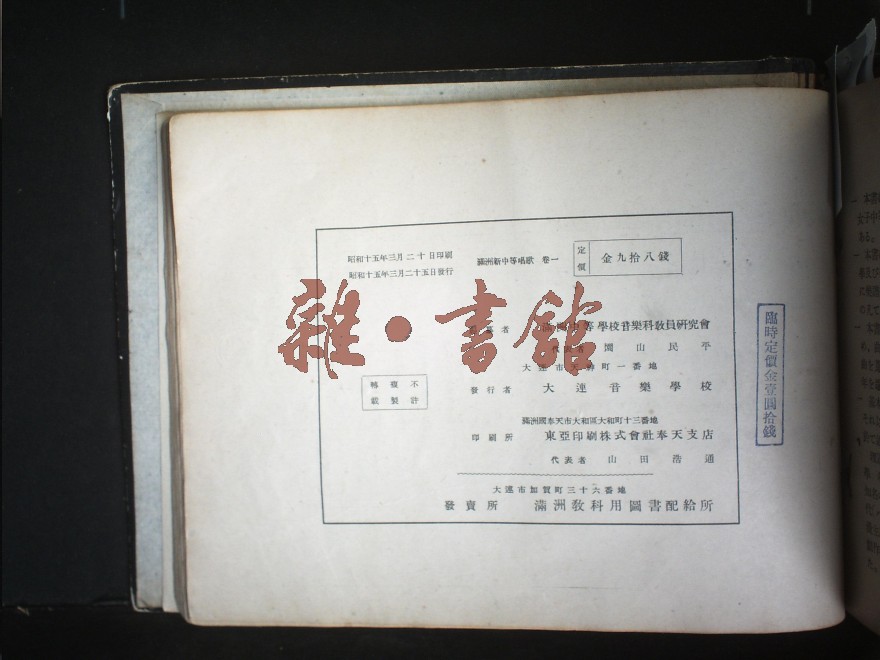 昭和十五年三月二十日印刷
昭和十五年三月二十五日發行
滿洲新中等唱歌 卷一
定價
金九拾八錢
者 等學校音樂科敎員硏究會
代表者 園山民平
大連市 町一番地
發行者 大連音樂學校
不許
複製
轉載
滿洲國奉天市大和區大和町十三番地
印刷所 東亞印刷株式會社奉天支店
代表者 山田浩通
大連市加賀町三十六番地
發賣所 滿洲敎科用圖書配給所
雜·書館
臨時定價金壹圓拾錢